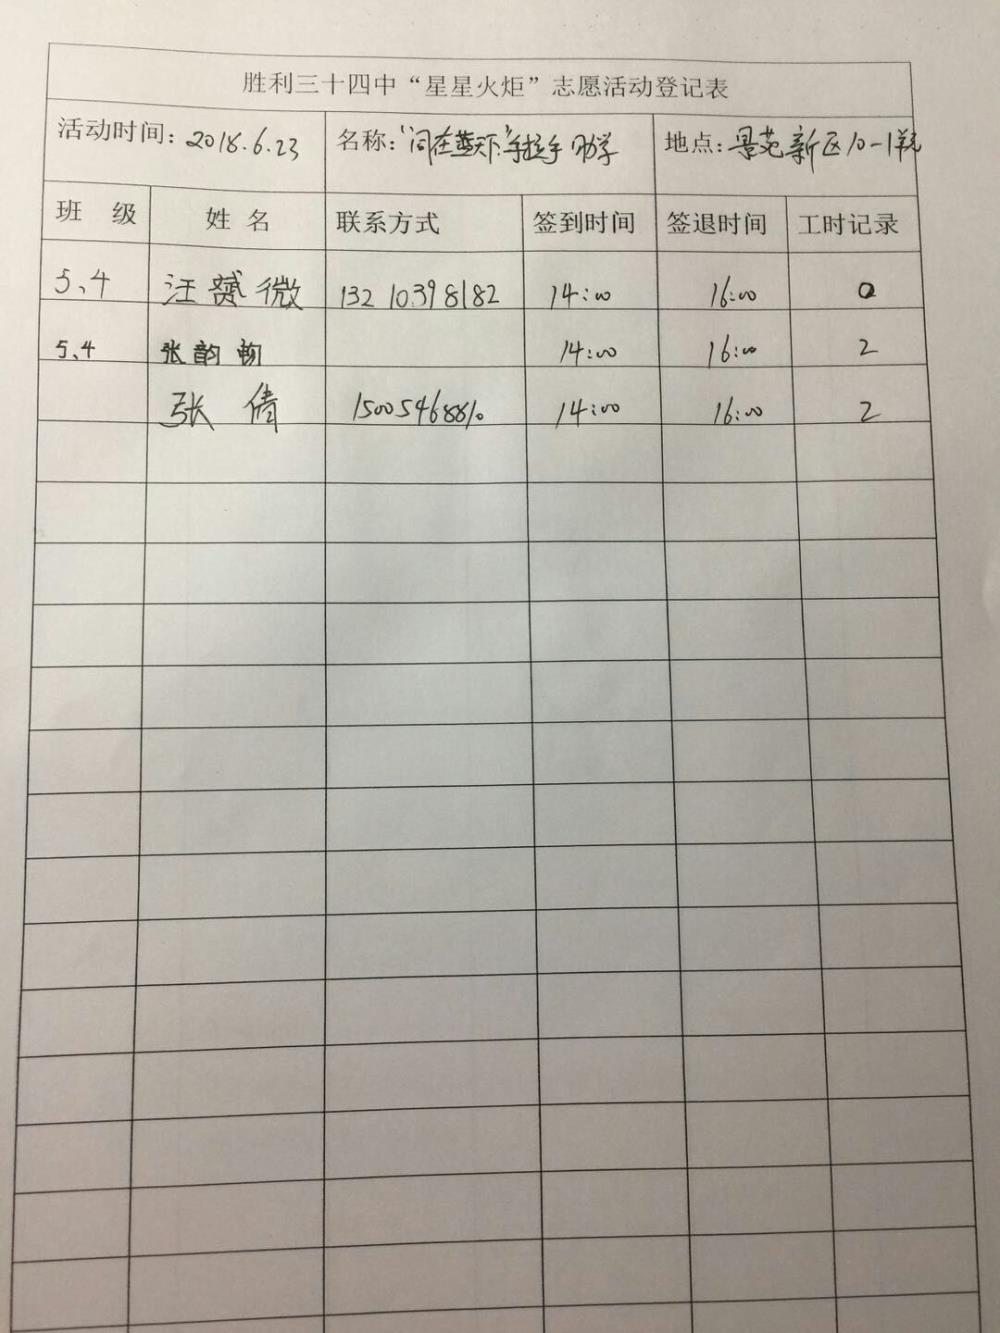 胜利三十四中“星星火炬”志愿活动登记表
活动时间：2018.6.23 名称：“同在蓝天下”手拉手 助学 地点：景苑新区10-1
班 级 姓 名 联系方式 签到时间 签退时间 工时记录
5、4 汪赟微 132 10398182 14:00 16:00 2
5、4 张韵 14:00 16:00 2
张 倩 15005468810 14:00 16:00 2